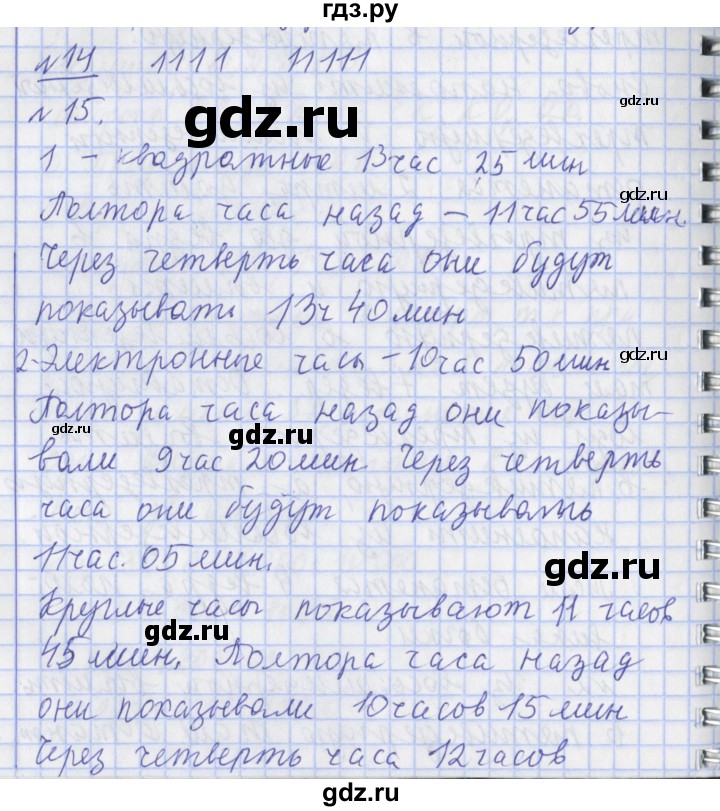 гдз.ру
№14 1111 11111
gdz.ru
№15.
gdz.ru
1 - квадратные 13час 25 мин
gdz.ru
Полтора часа назад - 11час 55мин.
gdz.ru
Через четверть часа они будут
показывать 13ч 40мин
2-Электронные часы -10час 50мин
gdz.ru
Полтора часа назад они показы-
gdz.ru
gdz.ru
вали 9час 20мин Через четверть
часа они будут показывать
11час. 05мин.
gdz.ru
Круглые часы показывают 11 часов
gdz.ru
45мин. Полтора часа назад
они показывали 10часов 15мин
gdz.ru
Через четверть часа 12часов
gdz.ru